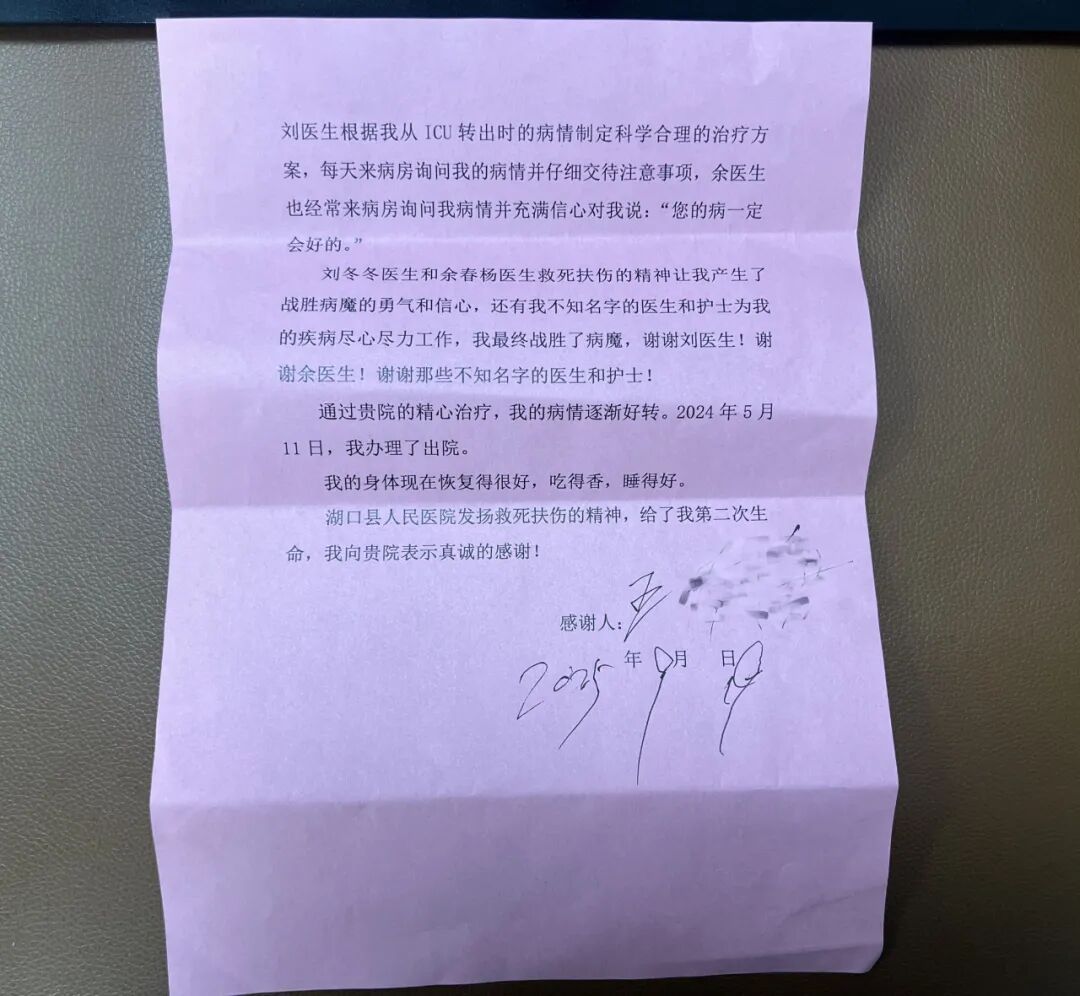 刘医生根据我从 ICU 转出时的病情制定科学合理的治疗方
案，每天来病房询问我的病情并仔细交待注意事项，余医生
也经常来病房询问我病情并充满信心对我说：“您的病一定
会好的。”
刘冬冬医生和余春杨医生救死扶伤的精神让我产生了
战胜病魔的勇气和信心，还有我不知名字的医生和护士为我
的疾病尽心尽力工作，我最终战胜了病魔，谢谢刘医生！谢
谢余医生！谢谢那些不知名字的医生和护士！
通过贵院的精心治疗，我的病情逐渐好转。2024 年 5 月
11 日，我办理了出院。
我的身体现在恢复得很好，吃得香，睡得好。
湖口县人民医院发扬救死扶伤的精神，给了我第二次生
命，我向贵院表示真诚的感谢！
感谢人：王
2025 年 9 月 日